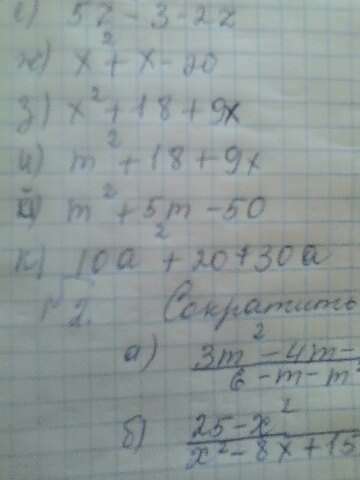 е) 5z - 3 - 2z
ж) x² + x - 20
з) x² + 18 + 9x
и) m² + 18 + 9x
й) m² + 5m - 50
к) 10a² + 20 + 30a
2. Сократить
а) 3m² - 4m -
6 - m - m²
б) 25 - x²
x² - 8x + 15